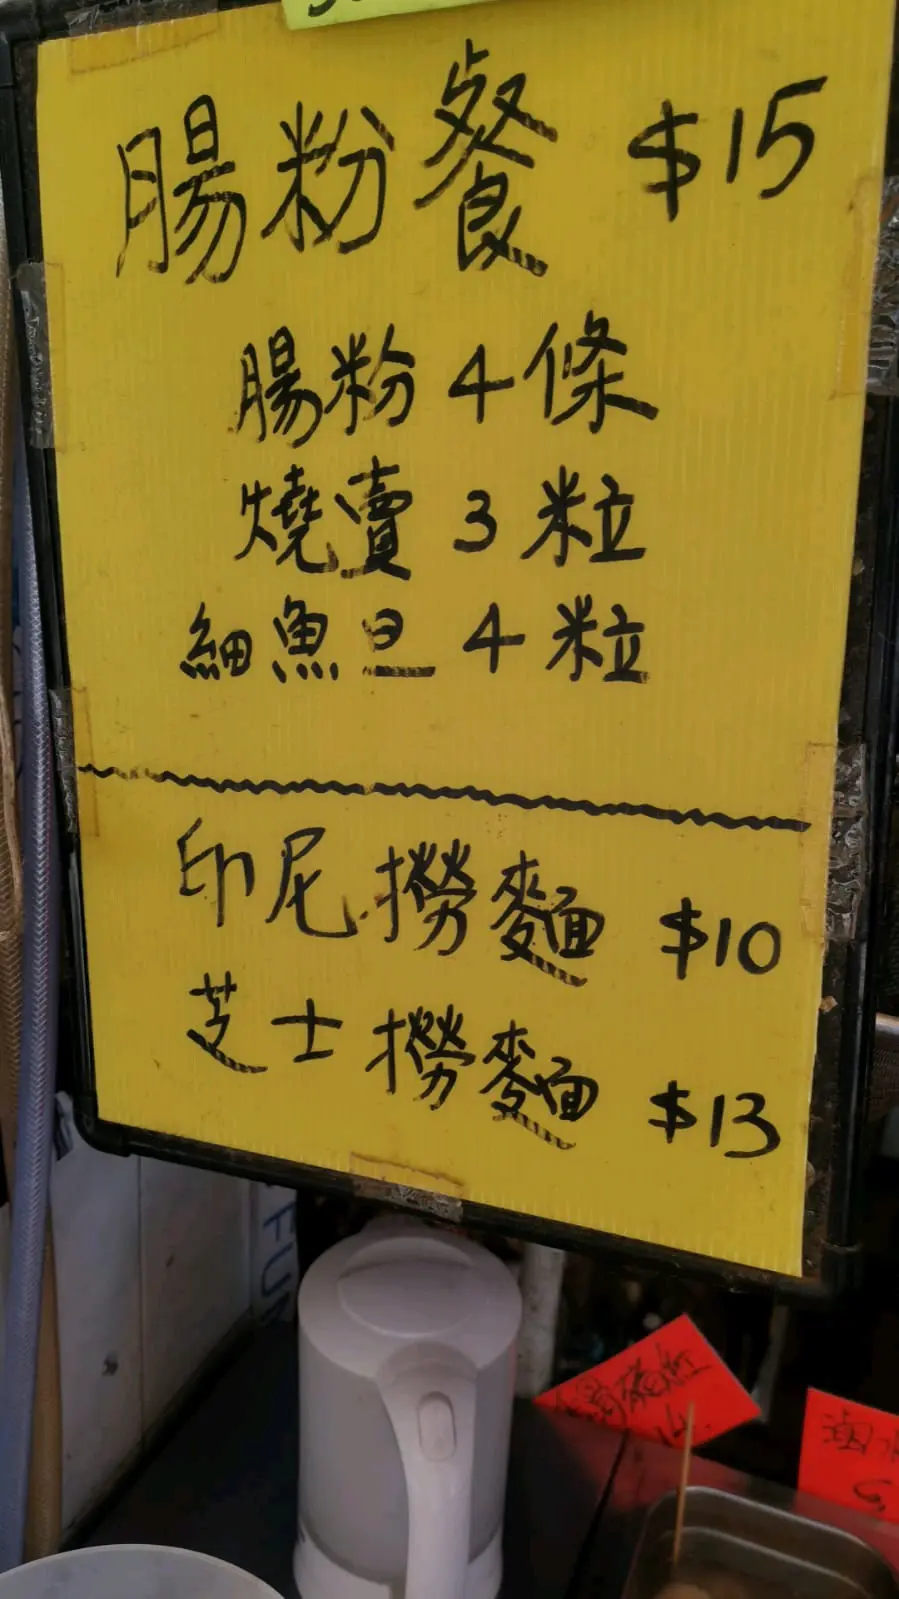 腸粉餐 $15
腸粉 4 條
燒賣 3 粒
細魚旦 4 粒
印尼撈麵 $10
芝士撈麵 $13
FUR